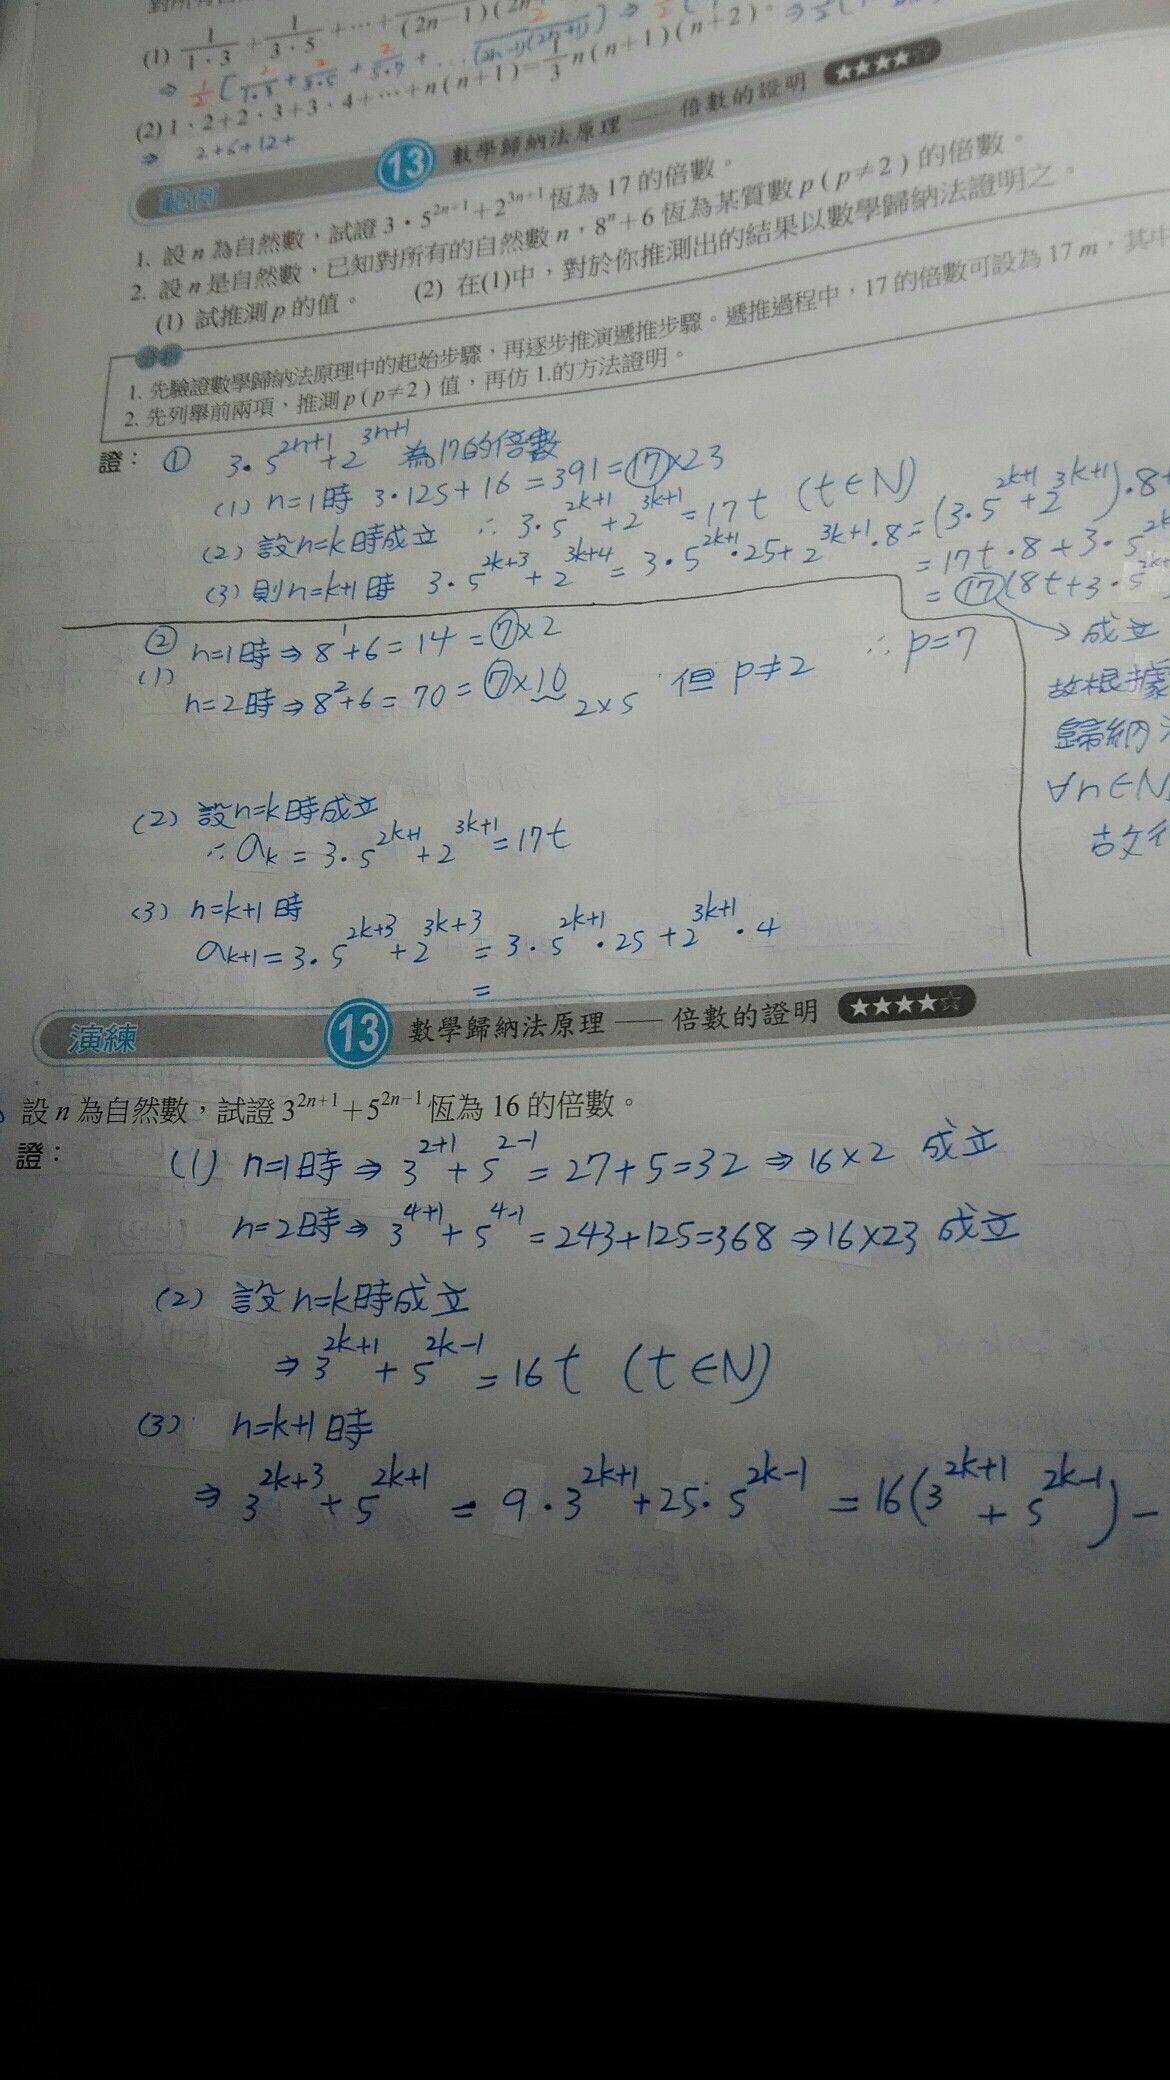 (1) 1/(1·3) + 1/(3·5) + ⋯ + (2n−1)(2n
⇒ 1/2 [ 2/(1·3) + 2/(3·5) + 2/(5·7) + ... 2/((2n-1)(2n+1)) ] ⇒
(2) 1·2+2·3+3·4+⋯+n(n+1)=1/3 n(n+1)(n+2)。
⇒ 2+6+12+
範例 13 數學歸納法原理 —— 倍數的證明 ★★★★☆
1. 設 n 為自然數，試證 3·5^{2n+1}+2^{3n+1} 恆為 17 的倍數。
2. 設 n 是自然數，已知對所有的自然數 n，8^n+6 恆為某質數 p(p≠2) 的倍數。
(1) 試推測 p 的值。 (2) 在(1)中，對於你推測出的結果以數學歸納法證明之。
分析
1. 先驗證數學歸納法原理中的起始步驟，再逐步推演遞推步驟。遞推過程中，17 的倍數可設為 17 m，其中
2. 先列舉前兩項，推測 p(p≠2) 值，再仿 1.的方法證明。
證： ① 3·5^{2n+1}+2^{3n+1} 為17的倍數
(1) n=1時 3·125+16=391=17×23
(2) 設n=k時成立 ∴ 3·5^{2k+1}+2^{3k+1}=17t (t∈N)
(3) 則n=k+1時 3·5^{2k+3}+2^{3k+4}=3·5^{2k+1}·25+2^{3k+1}·8=(3·5^{2k+1}+2^{3k+1})·8+
=17t·8+3·5^{2k
=17(8t+3·5^{2k+
→ 成立
故根據
歸納
∀n∈N
② n=1時⇒8^1+6=14=7×2
(1)
n=2時⇒8^2+6=70=7×10 2×5 但 p≠2 ∴p=7
(2) 設n=k時成立
∴ a_k=3·5^{2k+1}+2^{3k+1}=17t
(3) n=k+1時
a_{k+1}=3·5^{2k+3}+2^{3k+3}=3·5^{2k+1}·25+2^{3k+1}·4
=
演練 13 數學歸納法原理 —— 倍數的證明 ★★★★☆
設 n 為自然數，試證 3^{2n+1}+5^{2n−1} 恆為 16 的倍數。
證： (1) n=1時⇒3^{2+1}+5^{2-1}=27+5=32⇒16×2 成立
n=2時⇒3^{4+1}+5^{4-1}=243+125=368⇒16×23 成立
(2) 設n=k時成立
⇒3^{2k+1}+5^{2k-1}=16t (t∈N)
(3) n=k+1時
⇒3^{2k+3}+5^{2k+1}=9·3^{2k+1}+25·5^{2k-1}=16(3^{2k+1}+5^{2k-1})−